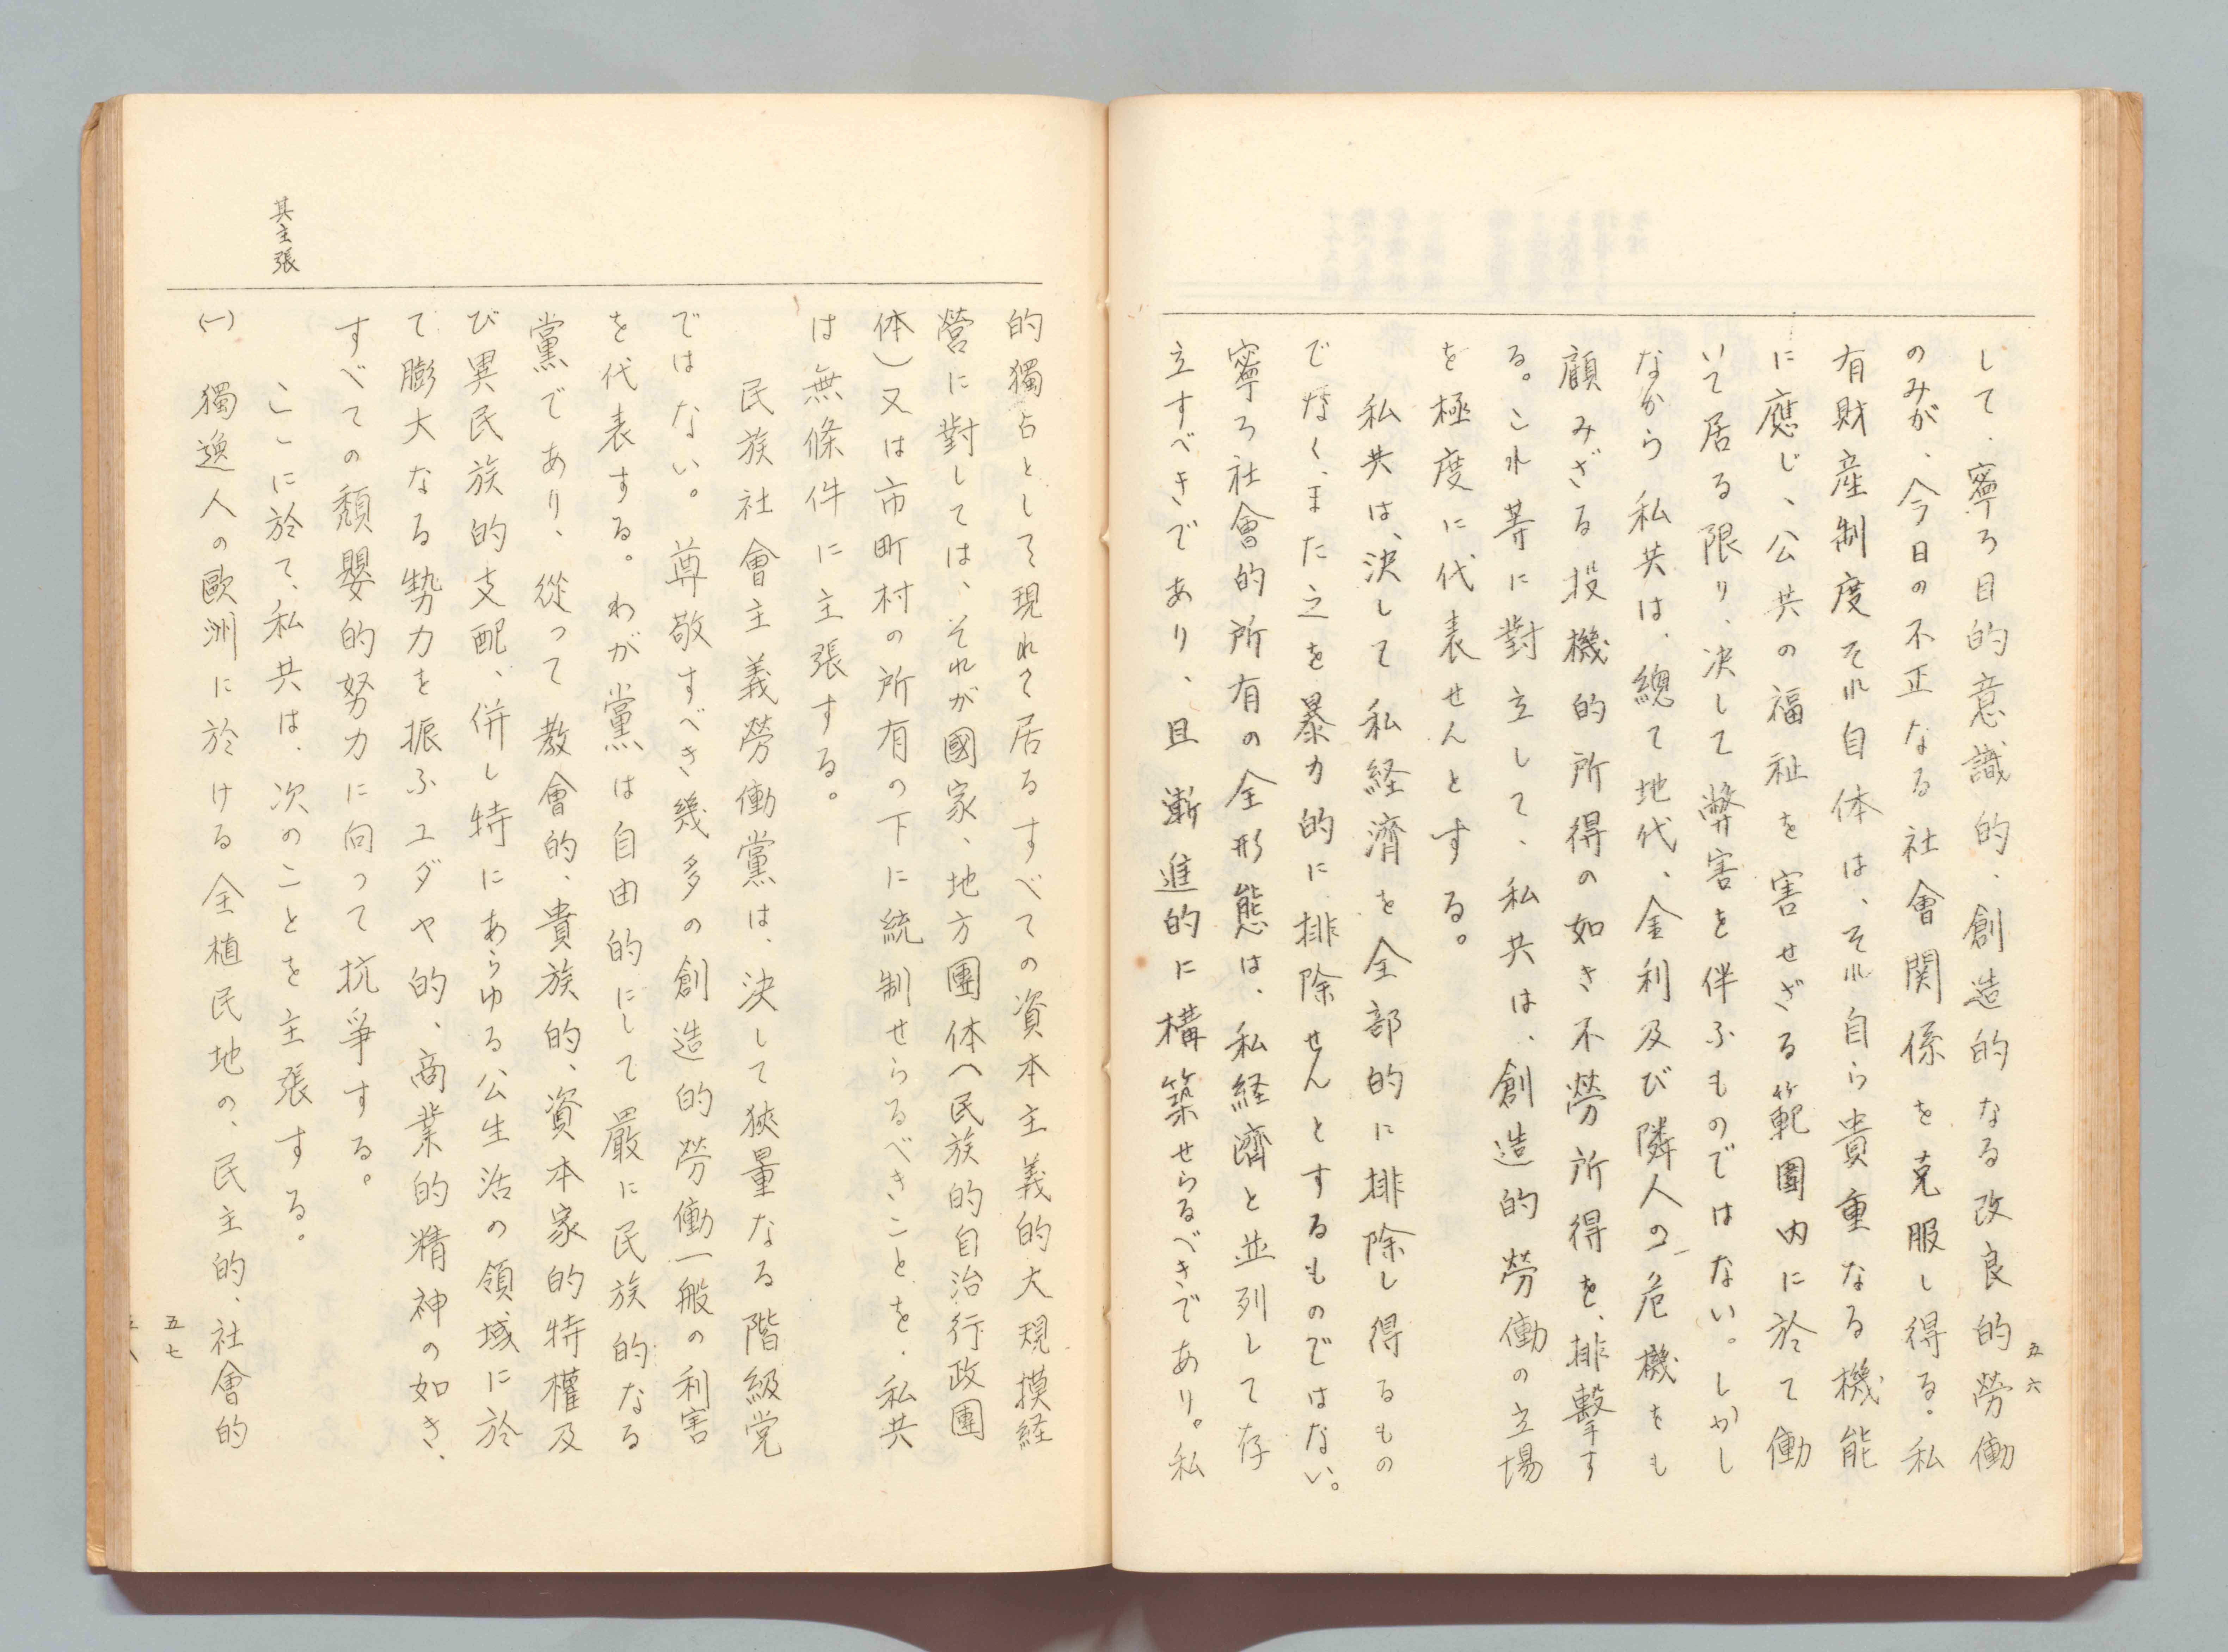 して、寧ろ目的意識的、創造的なる改良的勞働
のみが、今日の不正なる社會関係を克服し得る。私
有財産制度それ自体は、それ自ら貴重なる機能
に應じ、公共の福祉を害せざる範圍内に於て働
いて居る限り、决して弊害を伴ふものではない。しかし
なから私共は、總て地代、金利及び隣人の危機をも
顧みざる投機的所得の如き不勞所得を、排撃す
る。これ等に對立して、私共は、創造的勞働の立場
を極度に代表せんとする。
私共は、决して私経濟を全部的に排除し得るもの
でなく、また之を暴力的に排除せんとするものではない。
寧ろ社會的所有の全形態は、私経濟と並列して存
立すべきであり、且漸進的に構築せらるべきであり。私
五六
的獨占として現れて居るすべての資本主義的大規摸経
營に對しては、それが國家、地方團体(民族的自治行政團
体)又は市町村の所有の下に統制せらるべきことを、私共
は無條件に主張する。
民族社會主義勞働黨は、決して狹量なる階級党
ではない。尊敬すべき幾多の創造的勞働一般の利害
を代表する。わが黨は自由的にして嚴に民族的なる
黨であり、從って教會的、貴族的、資本家的特權及
び異民族的支配、併し特にあらゆる公生活の領域に於
て膨大なる勢力を振ふユダヤ的、商業的精神の如き、
すべての頽嬰的努力に向って抗爭する。
ここに於て、私共は、次のことを主張する。
其主張
(一) 獨逸人の歐洲に於ける全植民地の、民主的、社會的
五七